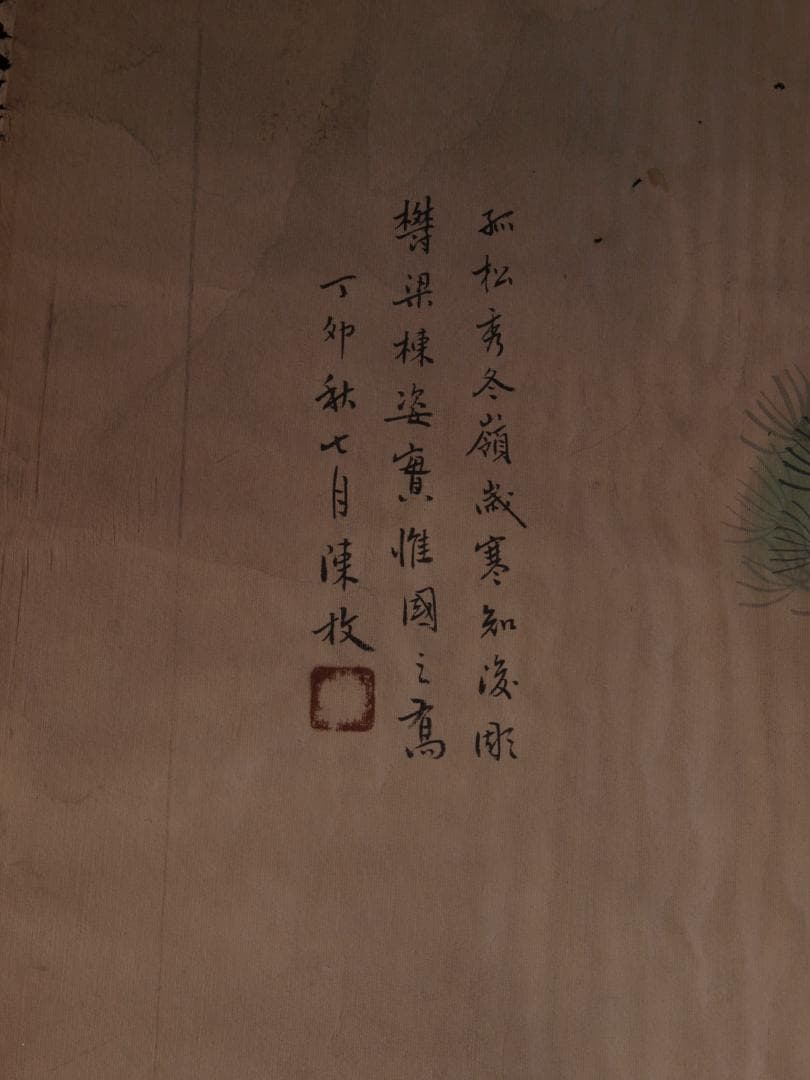 孤松秀冬嶺歲寒知後彫
梁棟姿實惟國之喬
丁卯秋七月陳枚